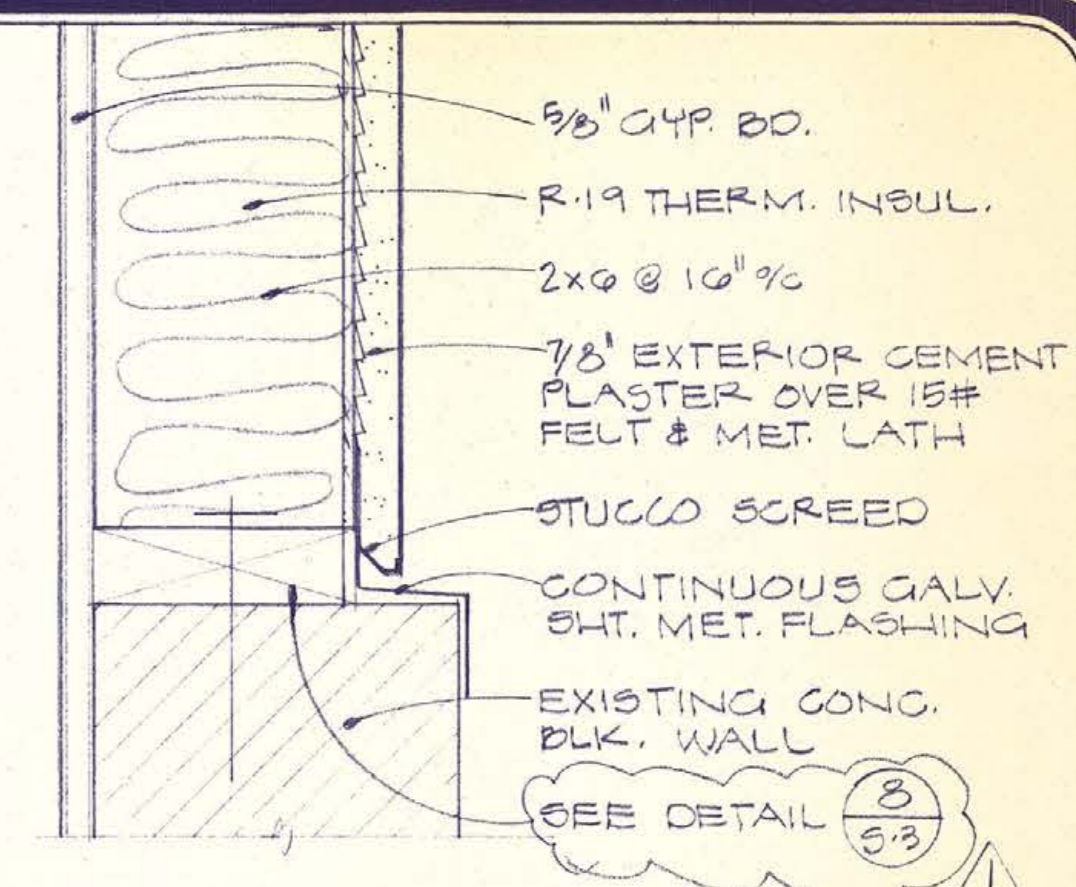 5/8" GYP. BD.
R-19 THERM. INSUL.
2x6 @ 16" o/c
7/8" EXTERIOR CEMENT
PLASTER OVER 15#
FELT & MET. LATH
STUCCO SCREED
CONTINUOUS GALV.
SHT. MET. FLASHING
EXISTING CONC.
BLK. WALL
SEE DETAIL 8
S-3